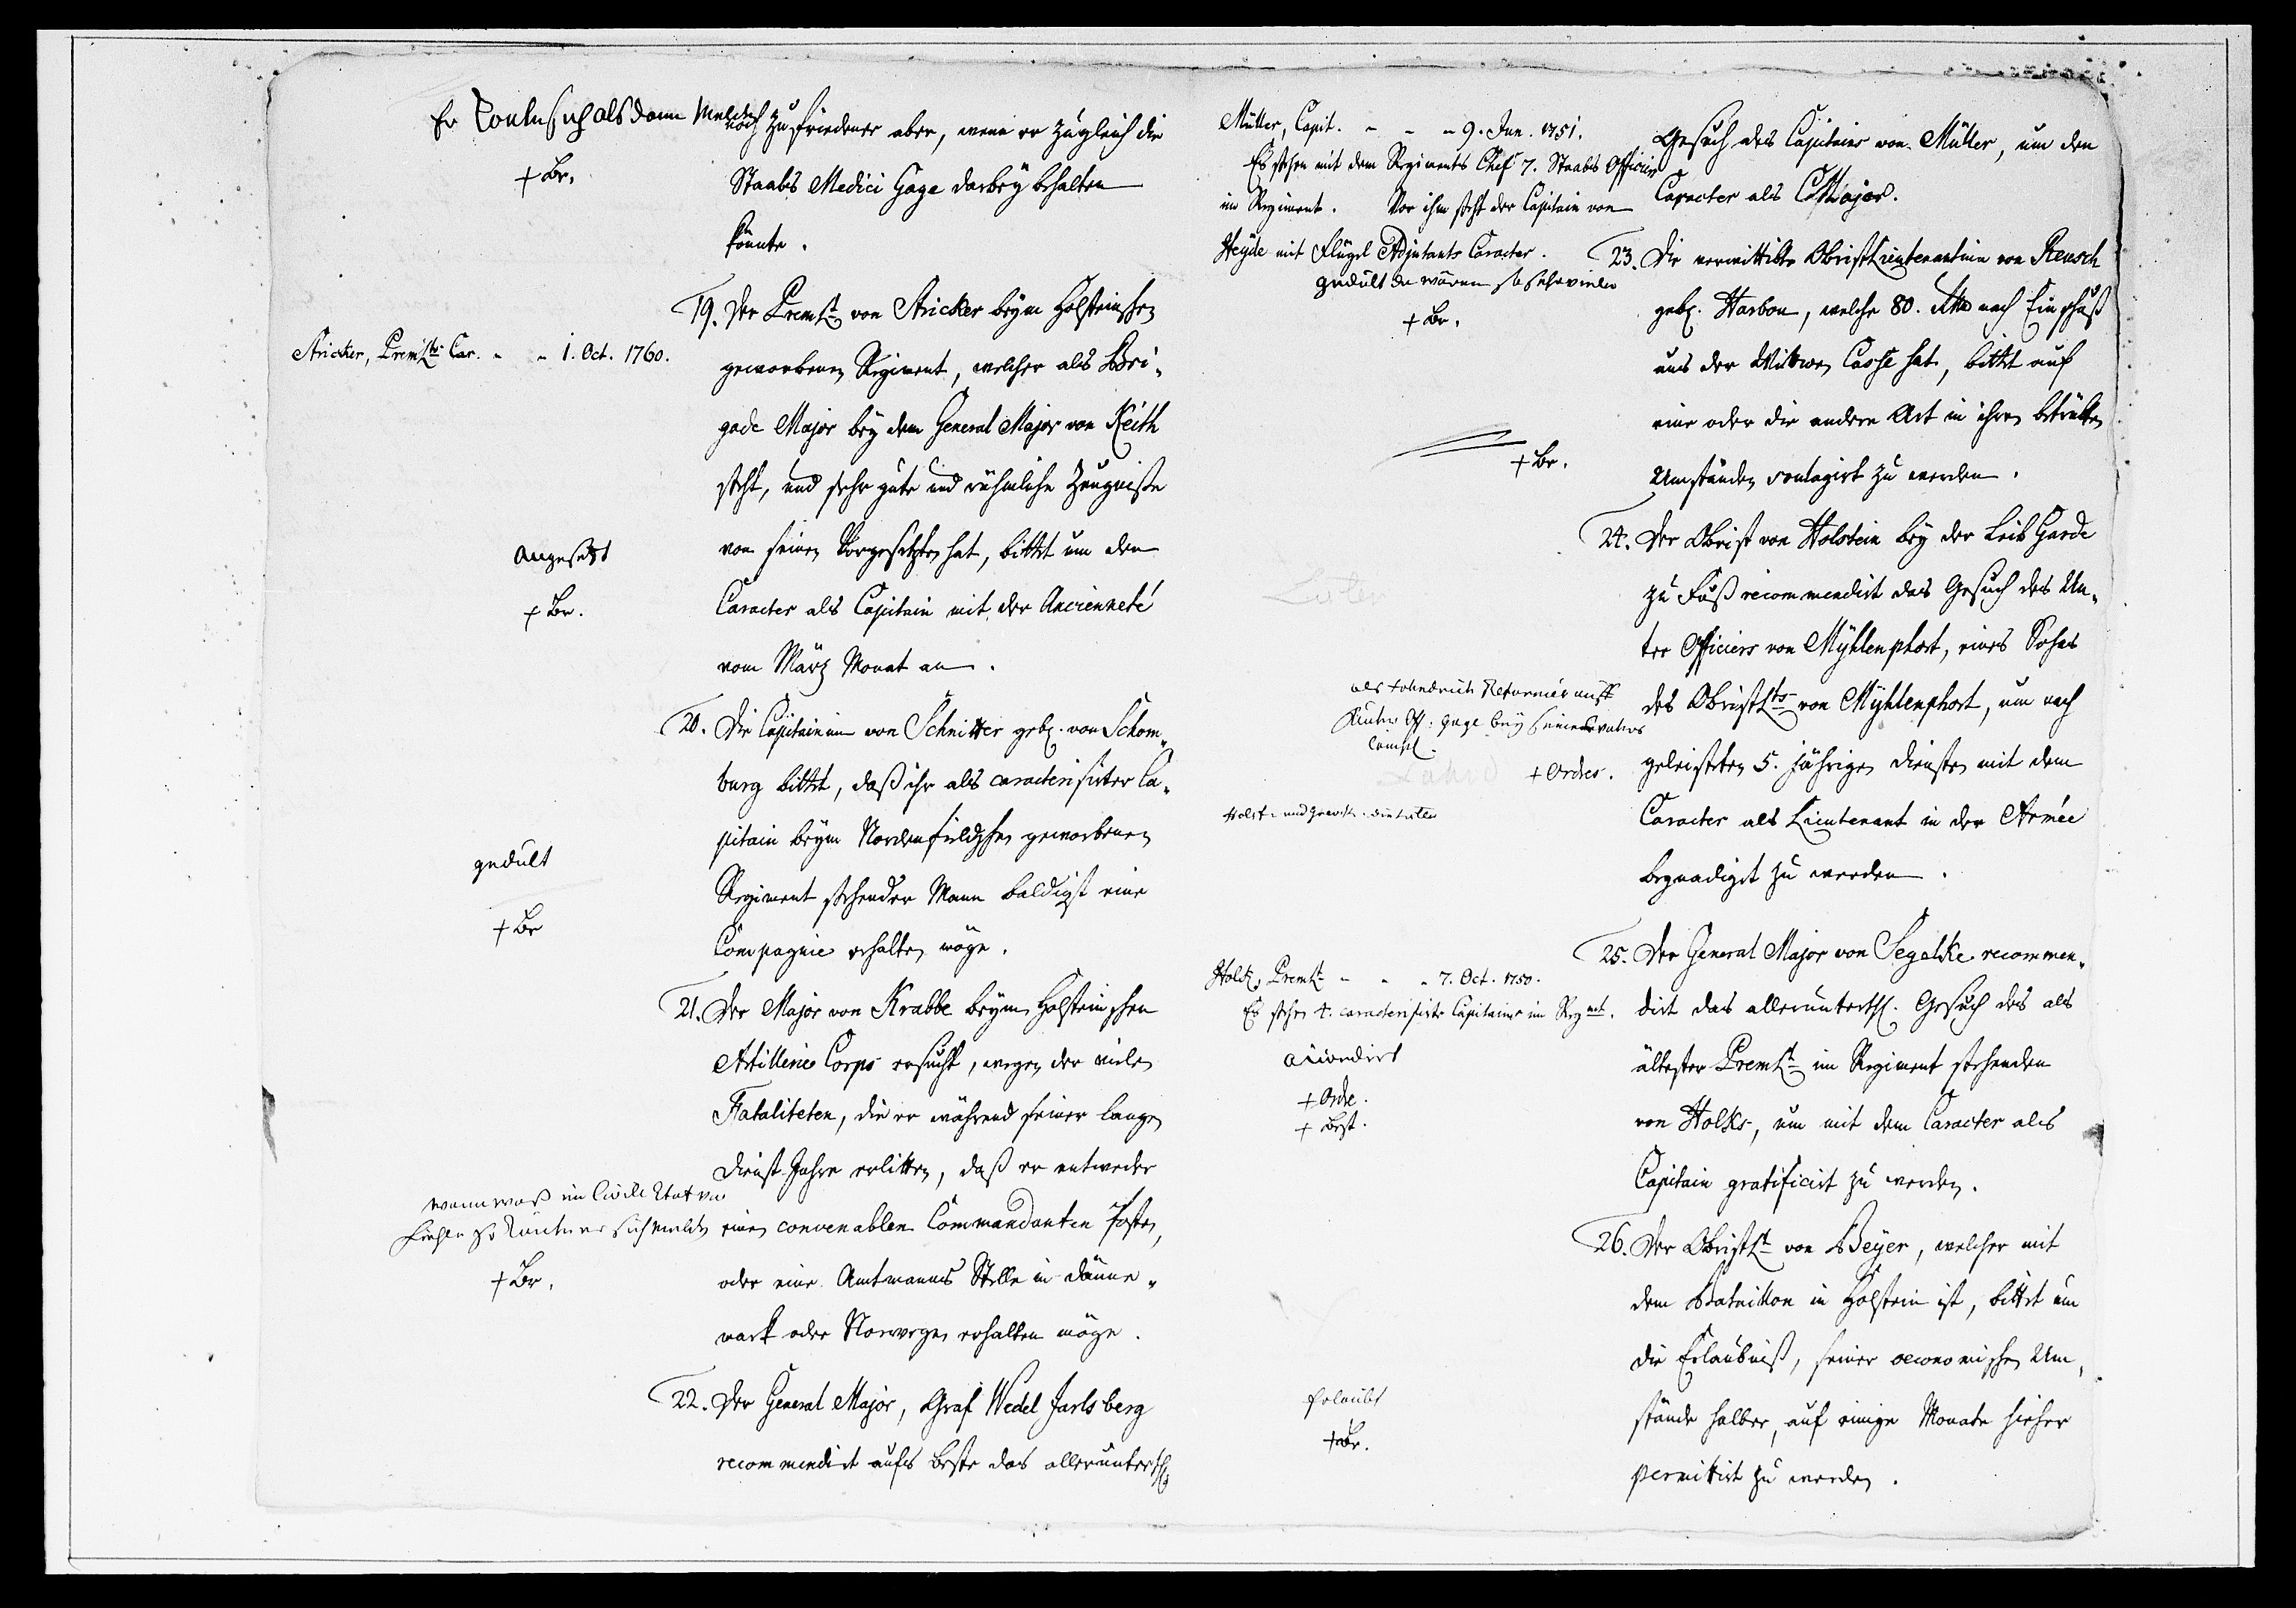 Er Konte sich als dann melden
+ Br.
noch zufriedener aber, wenn er zugleich die
Staabs Medici Gage darbey behalten
könte.
Stricker, PremLts Car. - - 1. Oct. 1760.
19. Der PremLt von Stricker beym Holsteinschen
geworbenen Regiment, welcher als Bri-
gade Major bey dem General Major von Keith
steht, und sehr gute und rühmliche Zeugnisse
von seinen Vorgesetzten hat, bittet um den
Caracter als Capitain mit der Ancienneté
vom März Monat an.
angesetzt
+ Br.
20. Die Capitainin von Schnitter geb. von Schom-
burg bittet, daß ihr als caracterisirter Ca-
pitain beym Nordenfieldschen geworbenen
Regiment stehender Mann baldigst eine
Compagnie erhalten möge.
gedult
+ Br
21. Der Major von Krabbe beym Holsteinschen
Artillerie Corps ersucht, wegen der vielen
Fataliteten, die er während seiner langen
Dienst Jahre erlitten, daß er entweder
einen convenablen Commandanten Posten,
oder eine Amtmanns Stelle in Dänne-
mark oder Norwegen erhalten möge.
wann waß im Civile Etat
so Könte er sich melden
+ Br.
22. Der General Major, Graf Wedel Jarlsberg
recommendirt aufs beste das allerunterth.
Müller, Capit. - - - 9. Jun. 1751.
Es stehen mit dem Regiments Chef 7. Staabs Officier
im Regiment. Vor ihm steht der Capitain von
Heyde mit Flügel Adjutants Caracter.
gedult da wären so sehr viele
+ Br.
Gesuch des Capitains von Müller, um den
Caracter als Major.
23. Die verwittibte ObristLieutenantinn von Reusch
geb. Harbou, welche 80. Rthlr nach Einschuß
aus der Wittwen Casse hat, bittet auf
eine oder die andere Art in ihren betrübten
Umständen soulagirt zu werden.
+ Br.
24. Der Obrist von Holstein bey der Leib Garde
zu Fuß recommendirt das Gesuch des Un-
ter Officiers von Mÿhlenphort, eines Sohns
des ObristLts von Mÿhlenphort, um nach
geleisteten 5. jährigen Diensten mit dem
Caracter als Lieutenant in der Armée
begnadiget zu werden.
als Fahndrich Reformée mit
Unter Off: gage bey seines vaters
+ Ordres.
25. Der General Major von Segelke recommen-
dirt das allerunterth. Gesuch des als
ältester PremLt im Regiment stehenden
von Holks, um mit dem Caracter als
Capitain gratificirt zu werden.
Holck, PremLt - - - 7. Oct. 1750.
Es stehen 4. caracterisirte Capitains im Regmt.
accordirt
+ Ordre.
+ Best.
26. Der ObristLt von Beyer, welcher mit
dem Bataillon in Holstein ist, bittet um
die Erlaubniß, seiner oeconomischen Um-
stände halber, auf einige Monate hieher
permittirt zu werden.
Erlaubt
+ Br.